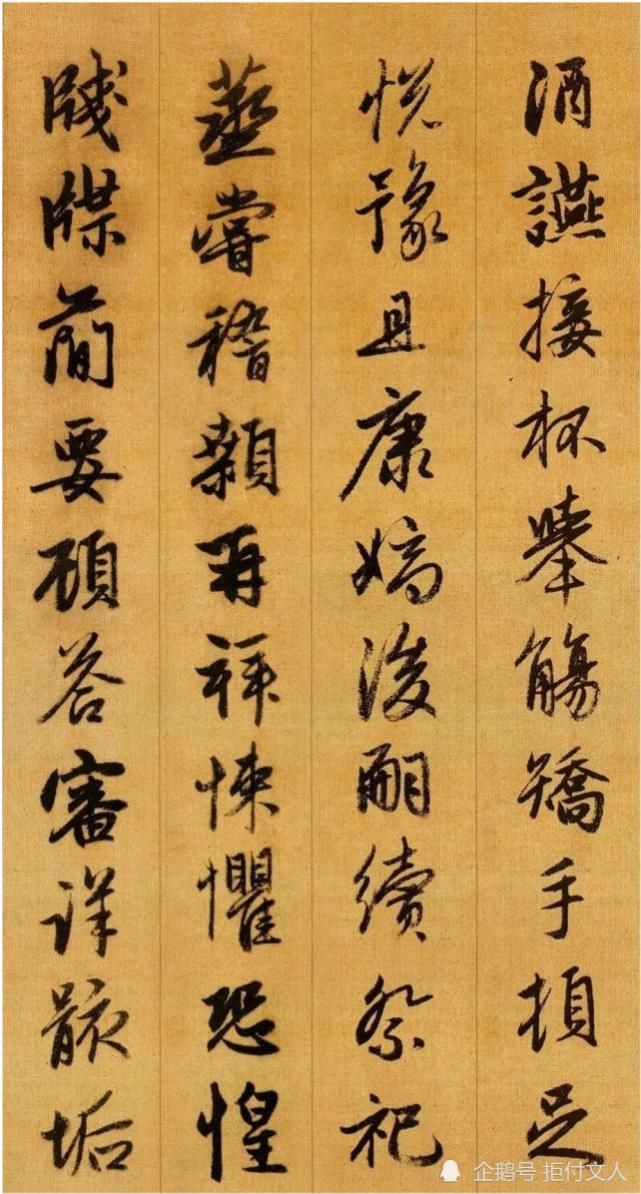 酒讌接杯舉觴矯手頓足
悅豫且康嫡後嗣續祭祀
蒸嘗稽顙再拜悚懼恐惶
牋牒簡要顧答審詳骸垢
企鹅号 拒付文人